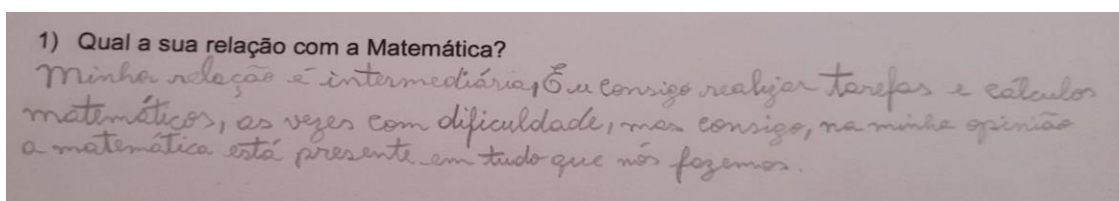 1) Qual a sua relação com a Matemática?
Minha relação é intermediária, Eu consigo realizar tarefas e cálculos
matemáticos, as vezes com dificuldade, mas consigo, na minha opinião
a matemática está presente em tudo que nós fazemos.